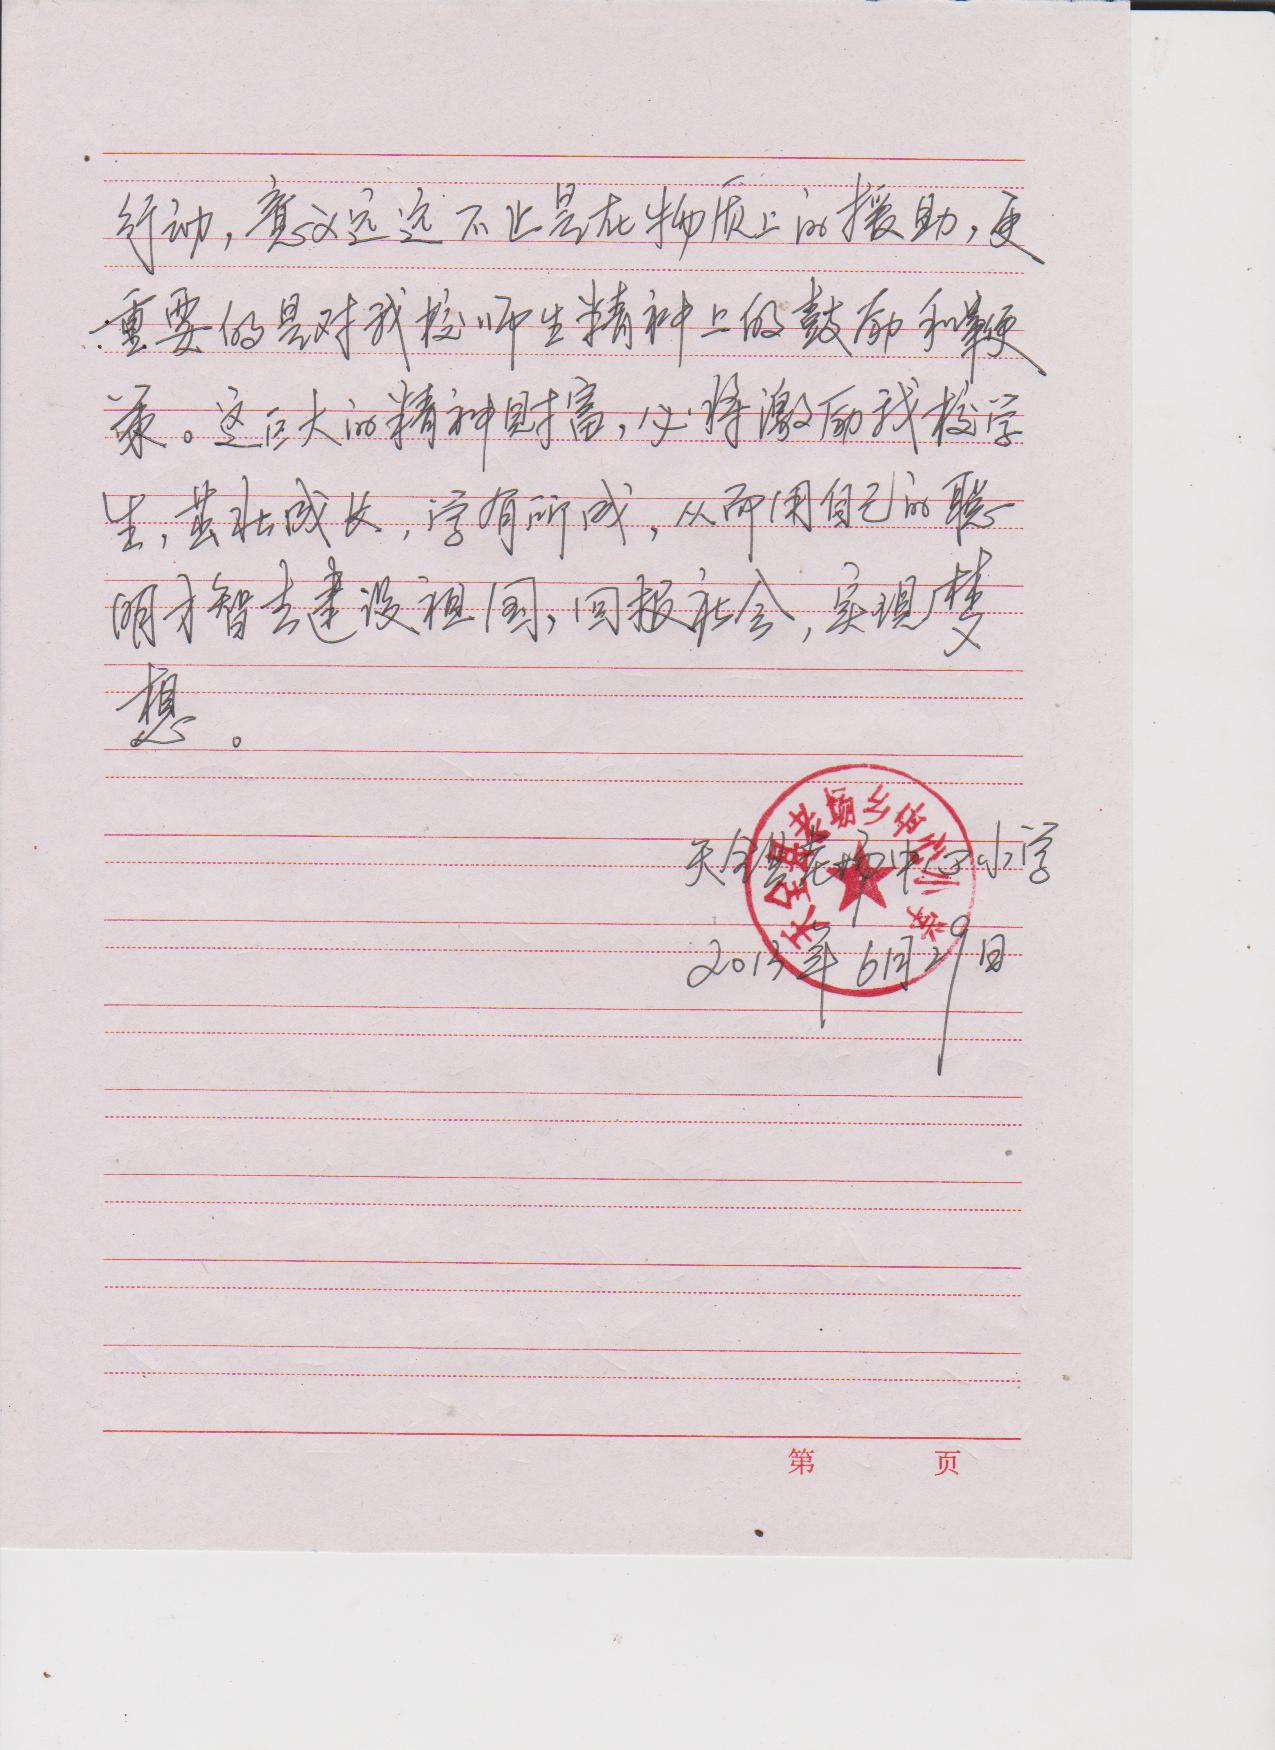 行动，意义远远不止是在物质上的援助，更
重要的是对我校师生精神上的鼓励和鞭
策。这巨大的精神财富，必将激励我校学
生，茁壮成长，学有所成，从而用自己的聪
明才智去建设祖国，回报社会，实现梦
想。
天全县老场中心小学
2013年6月29日
第 页